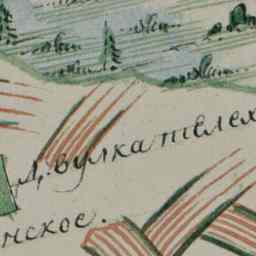 д, вулкателех
нское.